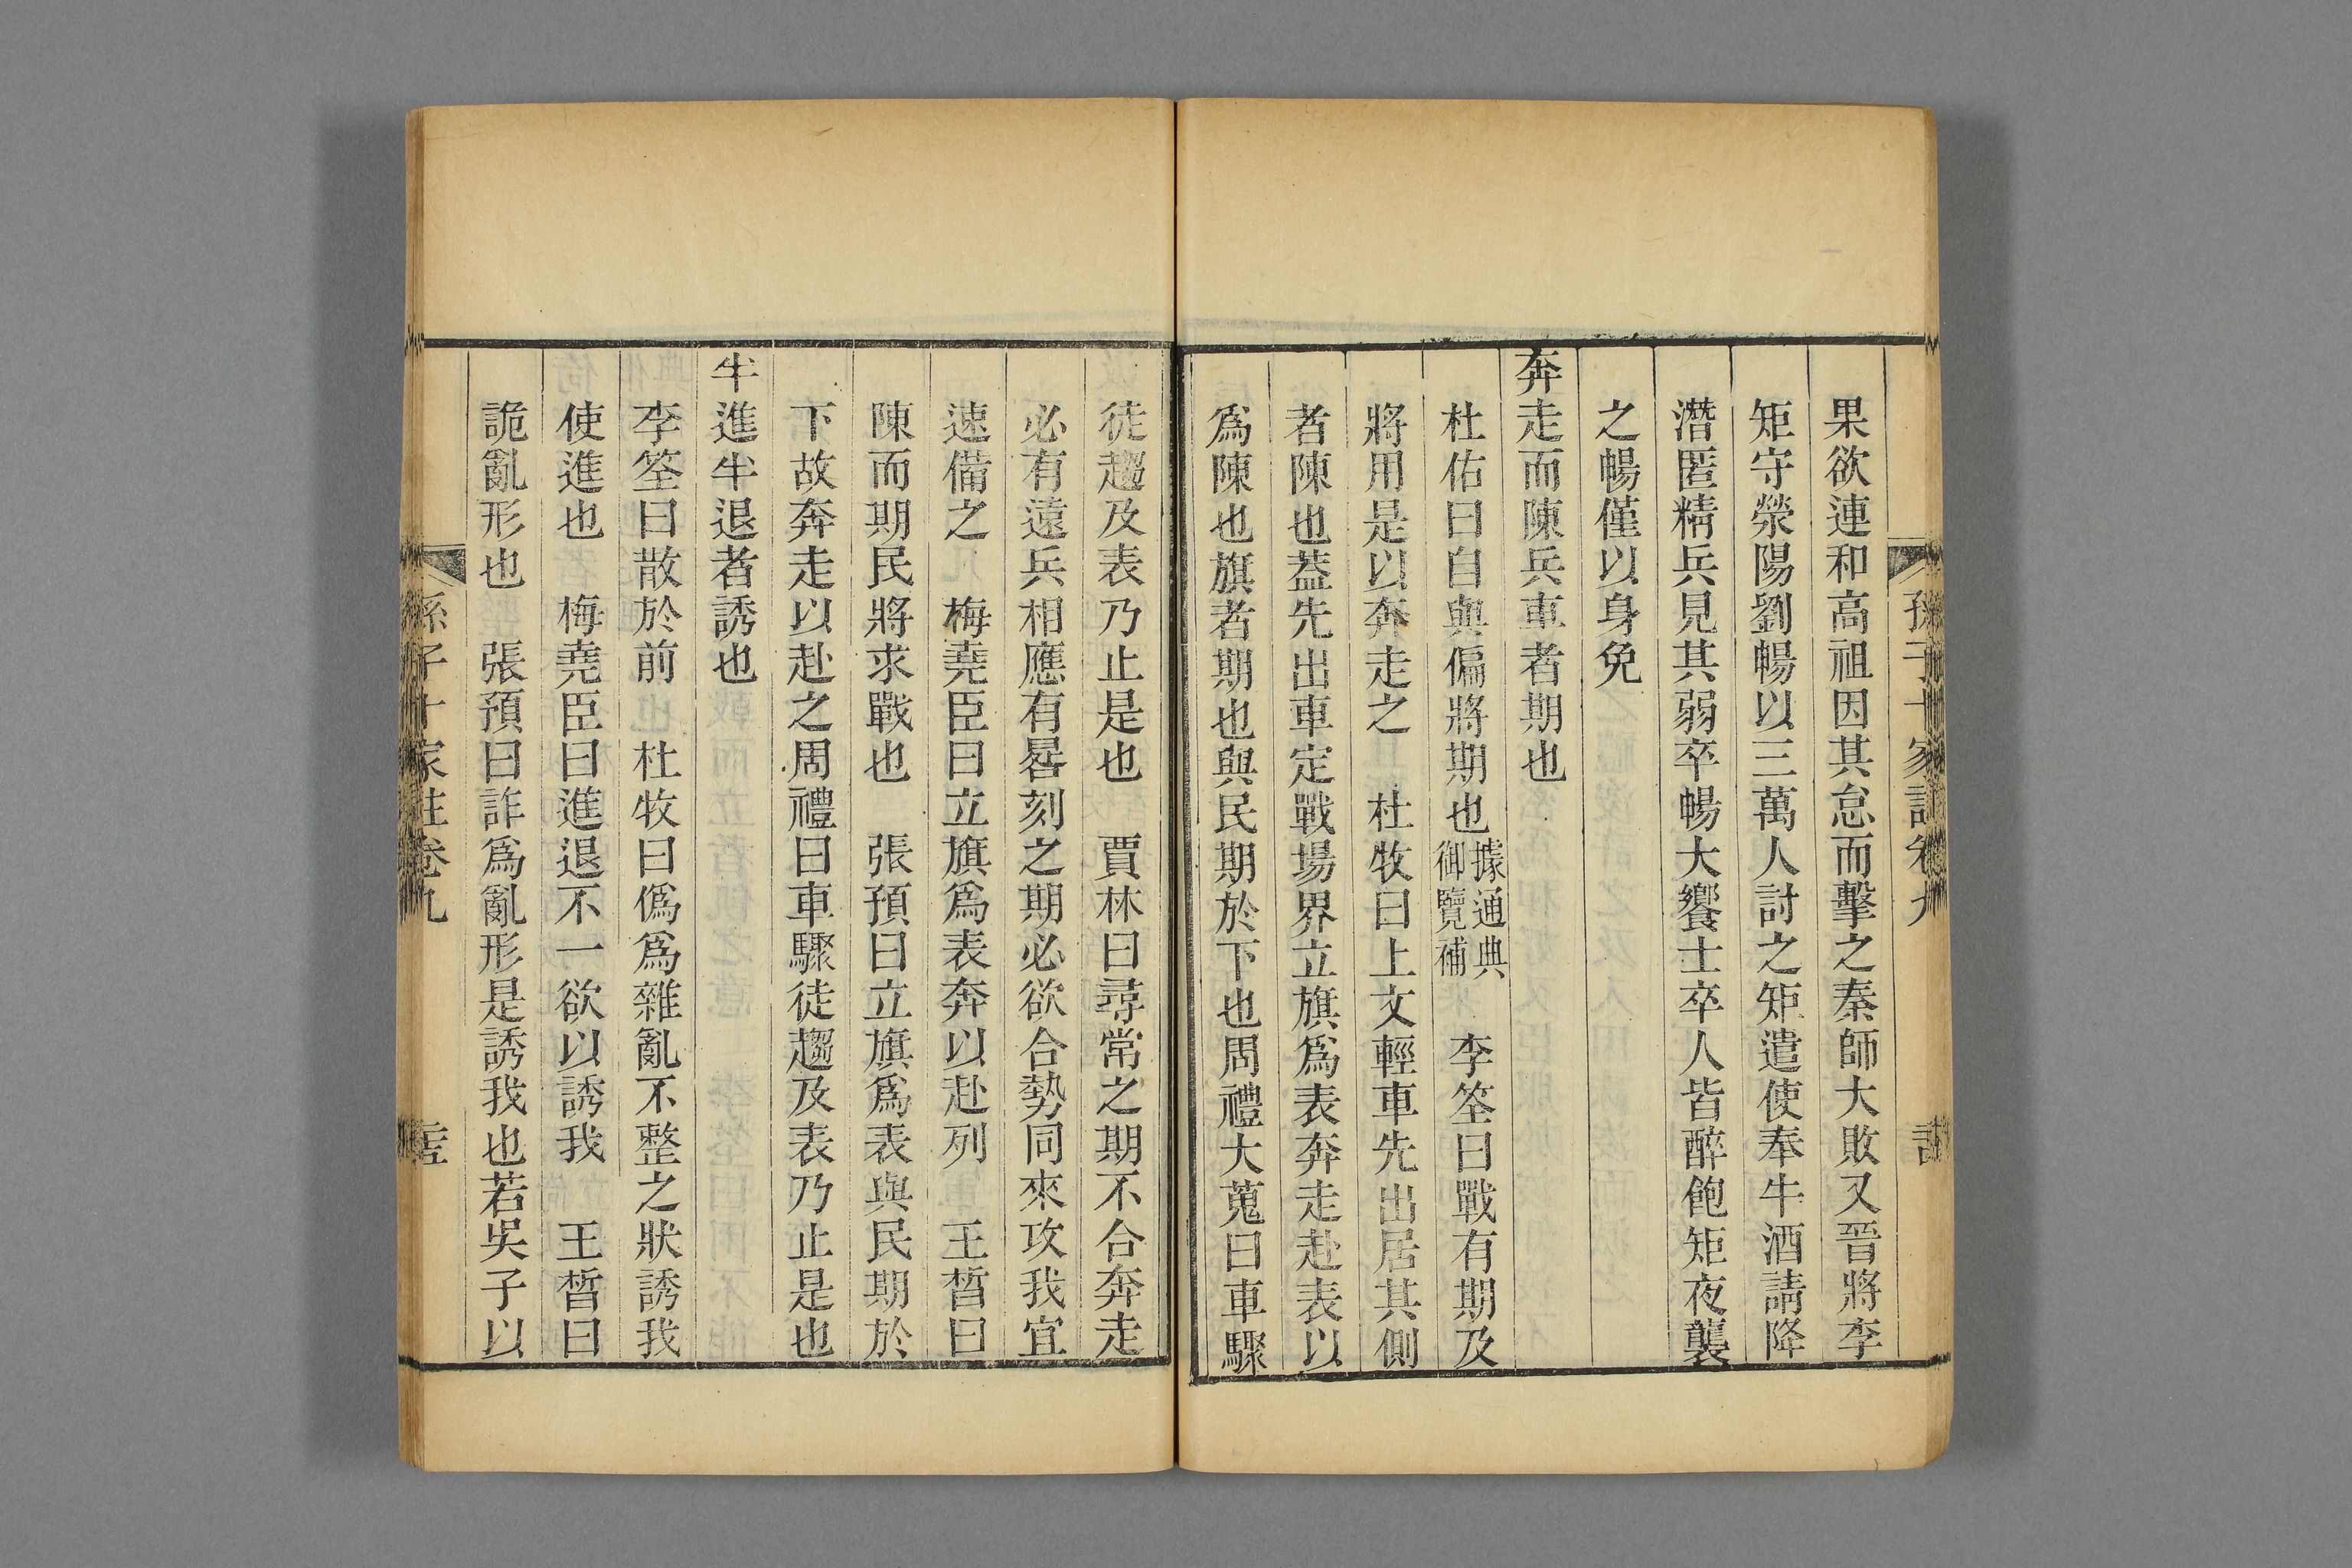 果欲連和高祖因其怠而擊之秦師大敗又晉將李
矩守滎陽劉暢以三萬人討之矩遣使奉牛酒請降
潛匿精兵見其弱卒暢大饗士卒人皆醉飽矩夜襲
之暢僅以身免
奔走而陳兵車者期也
杜佑曰自與偏將期也據通典御覽補　李筌曰戰有期及
將用是以奔走之　杜牧曰上文輕車先出居其側
者陳也葢先出車定戰場界立旗爲表奔走赴表以
爲陳也旗者期也與民期於下也周禮大蒐曰車驟
徒趨及表乃止是也　賈林曰尋常之期不合奔走
必有遠兵相應有晷刻之期必欲合勢同來攻我宜
速備之　梅堯臣曰立旗爲表奔以赴列　王晳曰
陳而期民將求戰也　張預曰立旗爲表與民期於
下故奔走以赴之周禮曰車驟徒趨及表乃止是也
半進半退者誘也
李筌曰散於前　杜牧曰僞爲雜亂不整之狀誘我
使進也　梅堯臣曰進退不一欲以誘我　王晳曰
詭亂形也　張預曰詐爲亂形是誘我也若吳子以
孫子十家註卷九